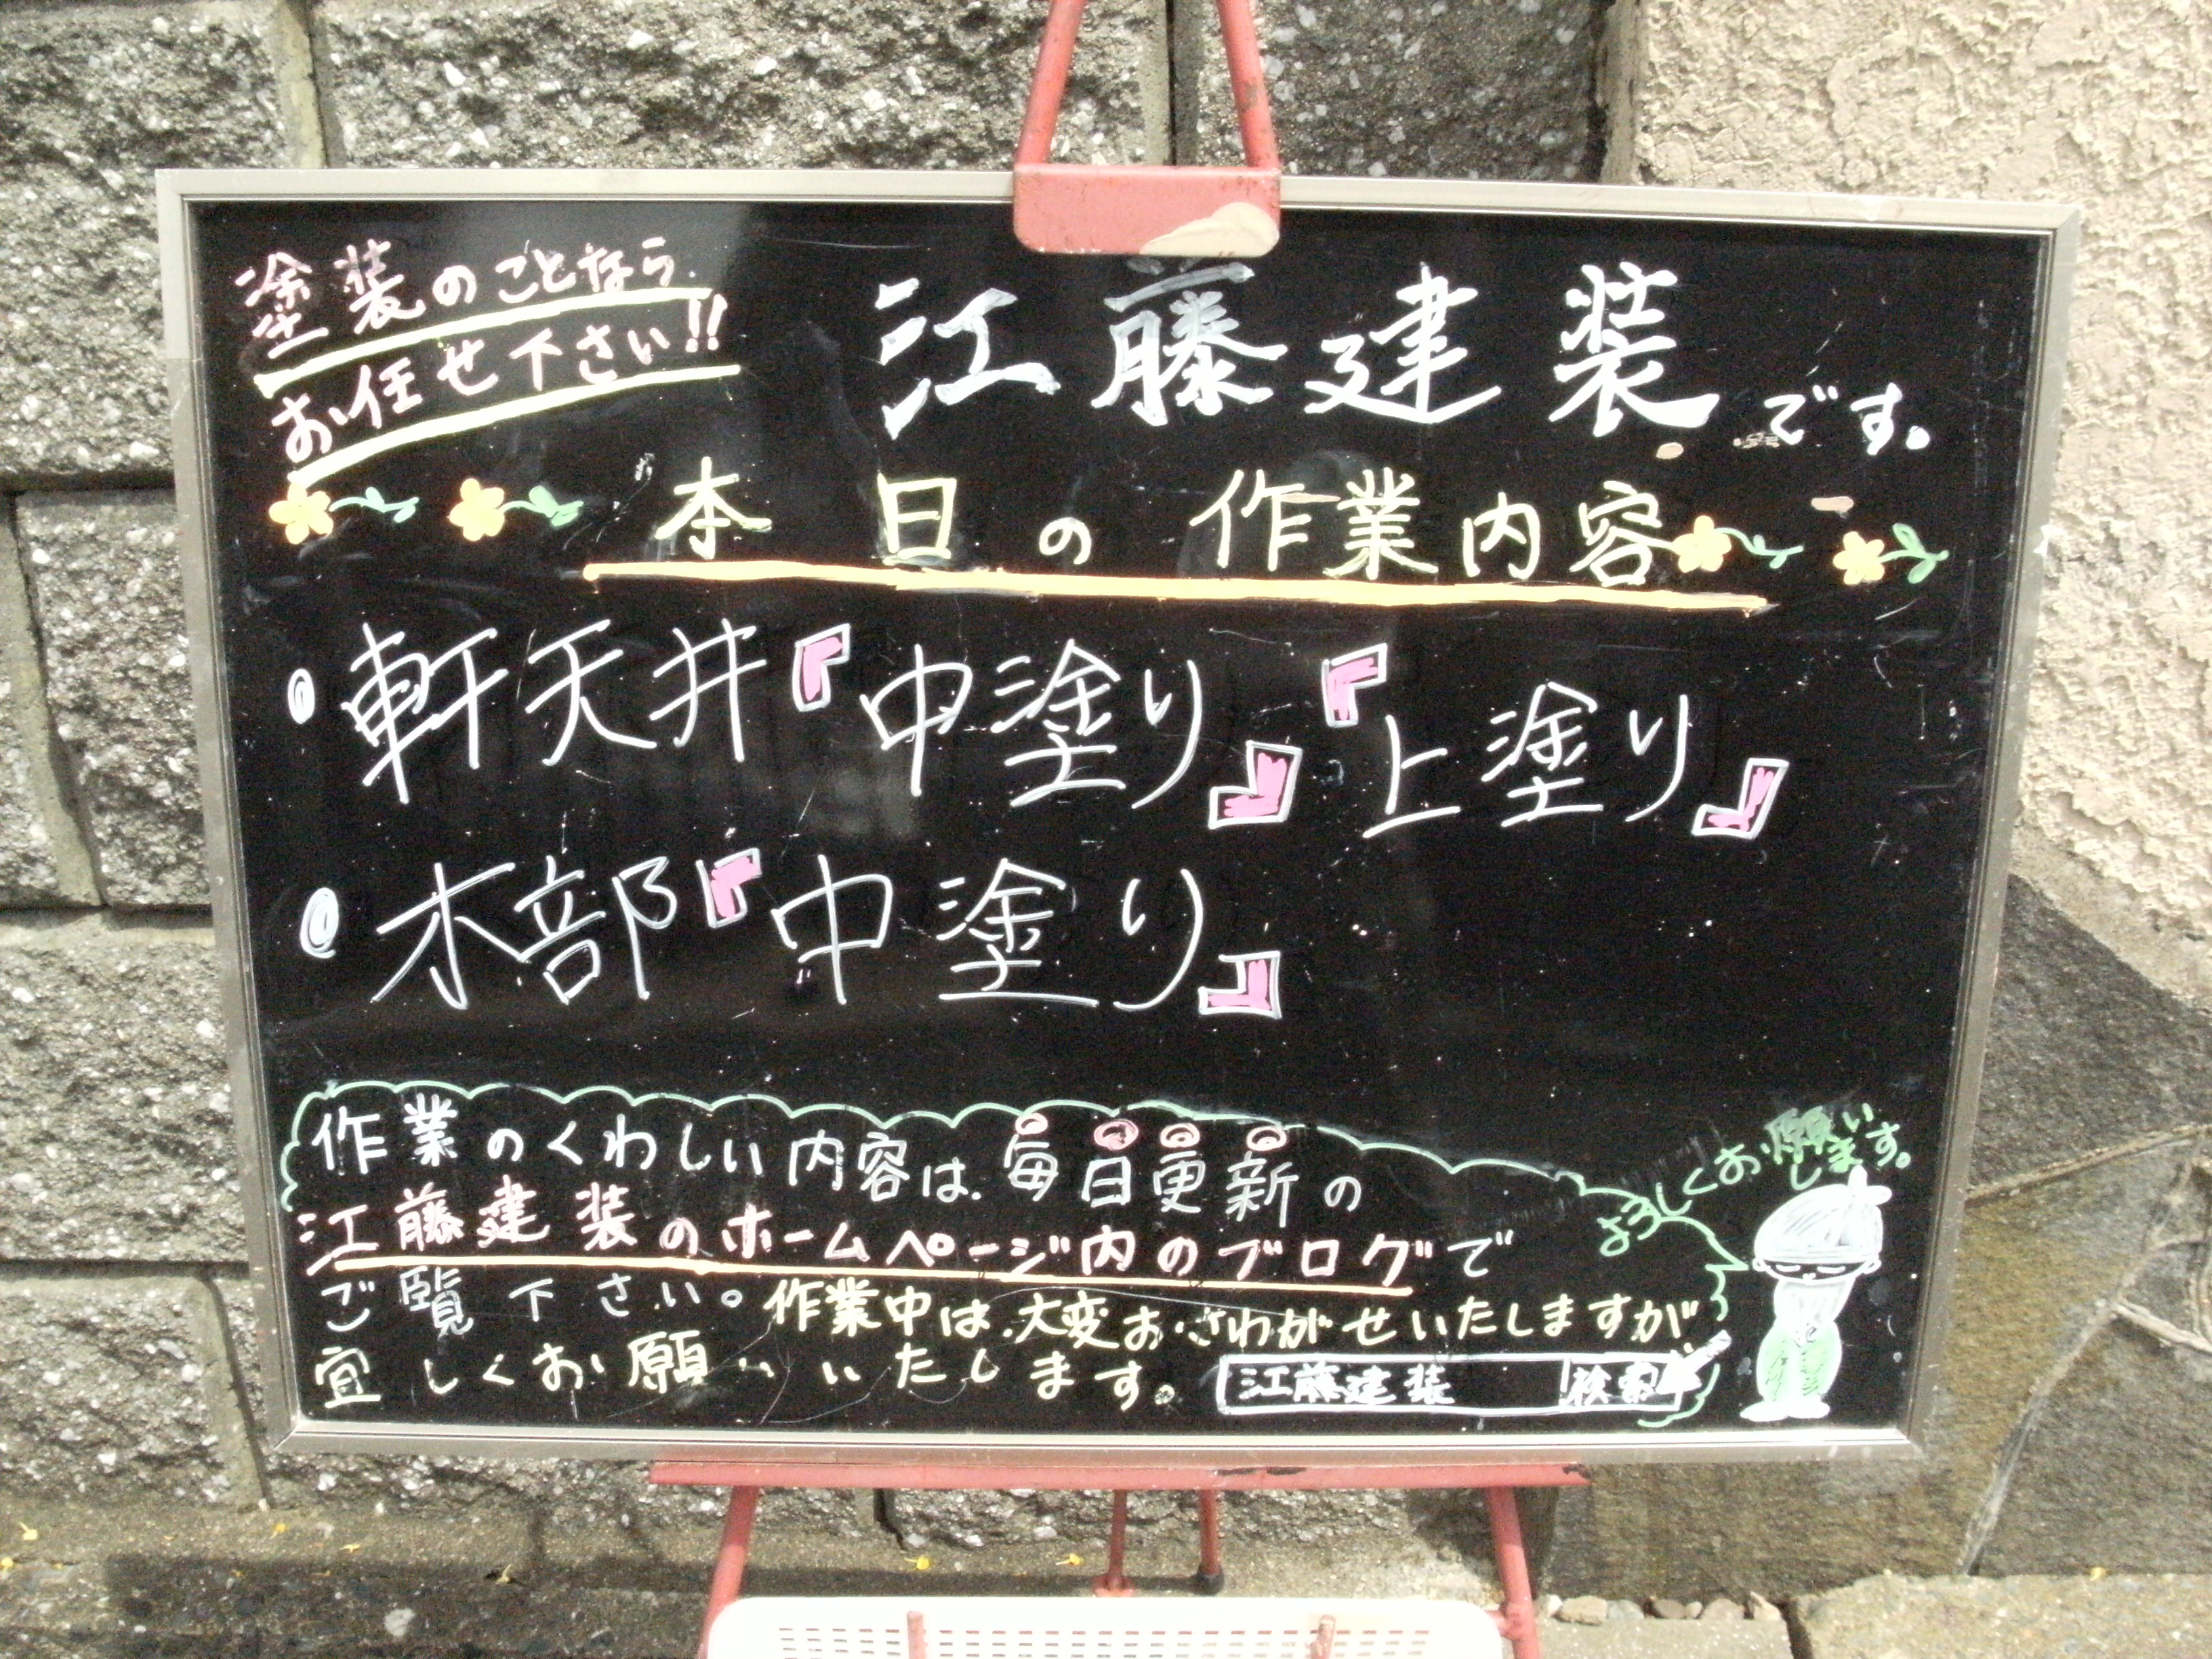 塗装のことなら
お任せ下さい!!
江藤建装です。
本日の作業内容
・軒天井『中塗り』『上塗り』
・木部『中塗り』
作業のくわしい内容は、毎日更新の
江藤建装のホームページ内のブログで
ご覧下さい。作業中は、大変おさわがせいたしますが
宜しくお願いいたします。
江藤建装 検索
よろしくお願い
します。